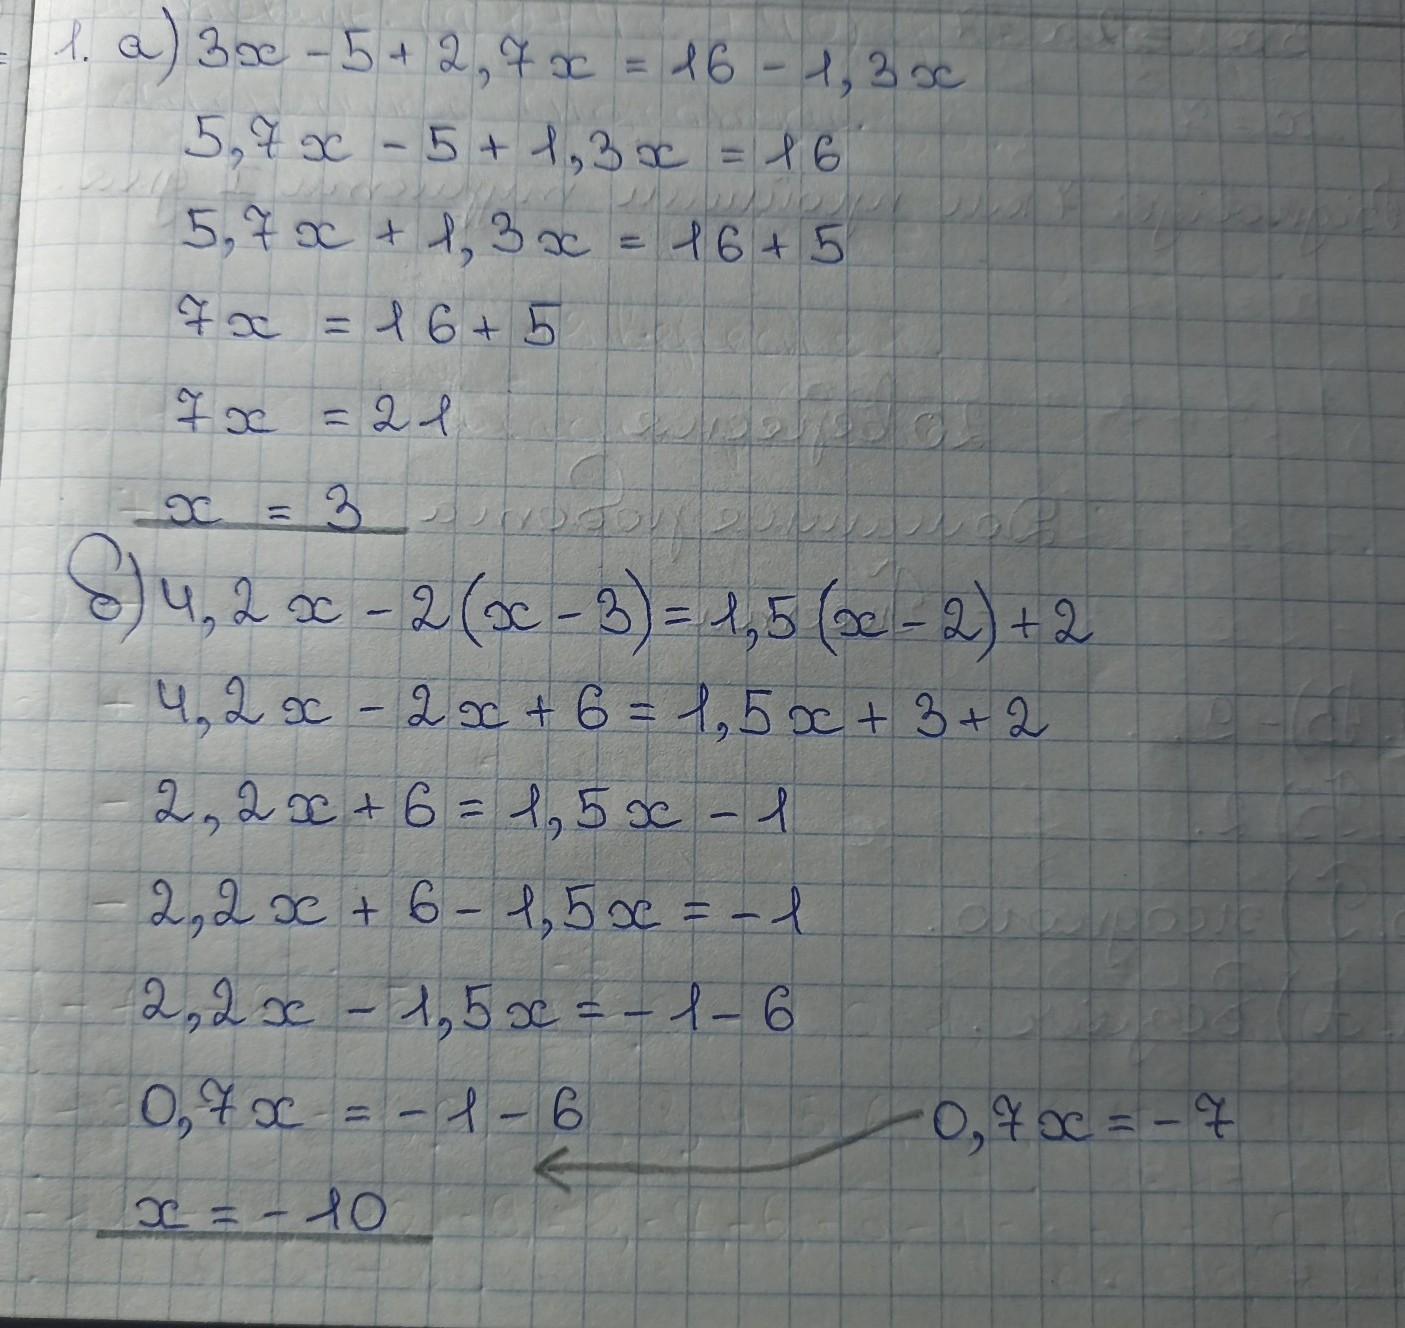 1. а) 3x - 5 + 2,7x = 16 - 1,3x
5,7x - 5 + 1,3x = 16
5,7x + 1,3x = 16 + 5
7x = 16 + 5
7x = 21
x = 3
б) 4,2x - 2(x - 3) = 1,5(x - 2) + 2
4,2x - 2x + 6 = 1,5x + 3 + 2
2,2x + 6 = 1,5x - 1
2,2x + 6 - 1,5x = -1
2,2x - 1,5x = -1 - 6
0,7x = -1 - 6
0,7x = -7
x = -10